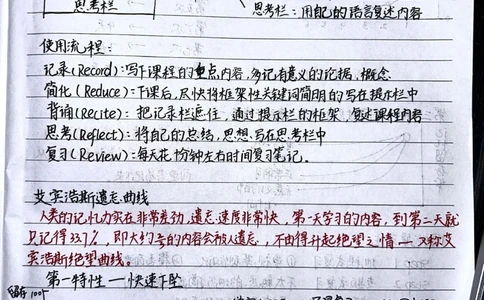 思考栏
思考栏：用自己的语言复述内容
使用流程：
记录(Record)：写下课程的重点内容，多记有意义的论据，概念
简化(Reduce)：下课后，尽快将框架性关键词简明的写在提示栏中
背诵(Recite)：把记录栏遮住，通过提示栏的框架，复述课程内容
思考(Reflect)：将自己的总结，思想写在思考栏中
复习(Review)：每天花10分钟左右时间复习笔记。
艾宾浩斯遗忘曲线
人类的记忆力实在非常差劲，遗忘速度非常快，第一天学习的内容，到第二天就
只记得33.7%，即大约⅔的内容会被人遗忘，不由得升起绝望之情——又称艾
宾浩斯绝望曲线。
第一特性——快速下坠